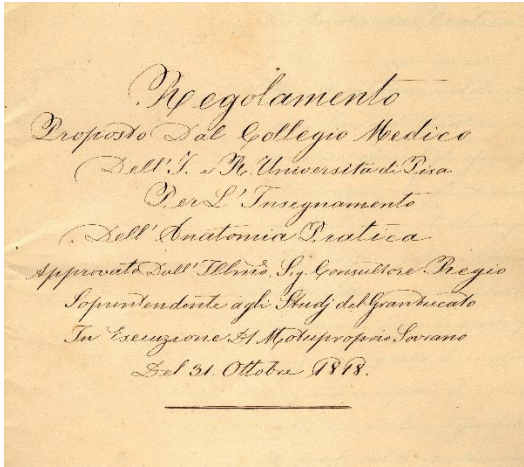 Regolamento
Proposto Dal Collegio Medico
Dell' I. e R. Università di Pisa
Per L' Insegnamento
Dell' Anatomia Pratica
Approvato Dall' Illmō. Sig. Consultore Regio
Soprintendente agli Studj del Granducato
In Esecuzione Del Motuproprio Sovrano
Del 31. Ottobre 1818.